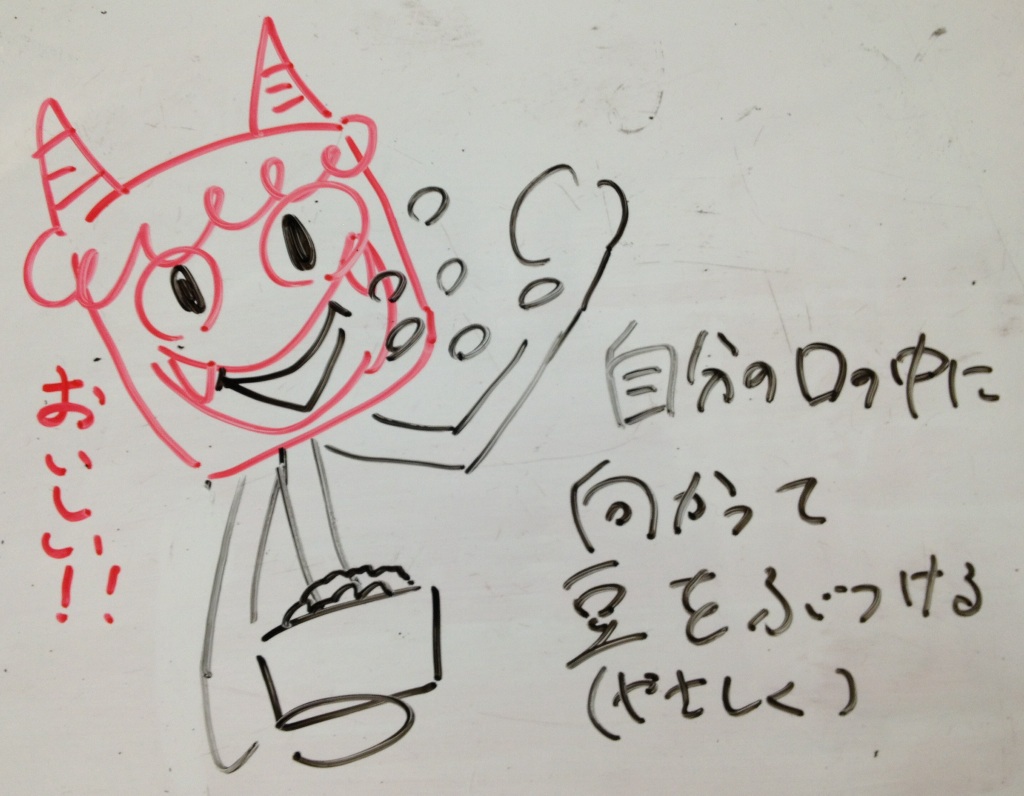 おいしい!!
自分の口の中に
向かって
豆をぶつける
(やさしく)